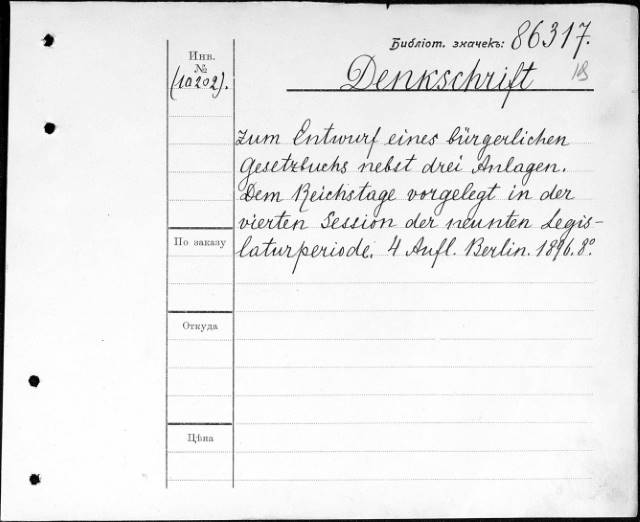 Библіот. значекъ: 86317.
Инв.
№
(10202).
Denkschrift
zum Entwurf eines bürgerlichen
Gesetzbuchs nebst drei Anlagen.
Dem Reichstage vorgelegt in der
vierten Session der neunten Legis-
laturperiode. 4 Aufl. Berlin. 1896. 8º.
По заказу
Откуда
Цѣна